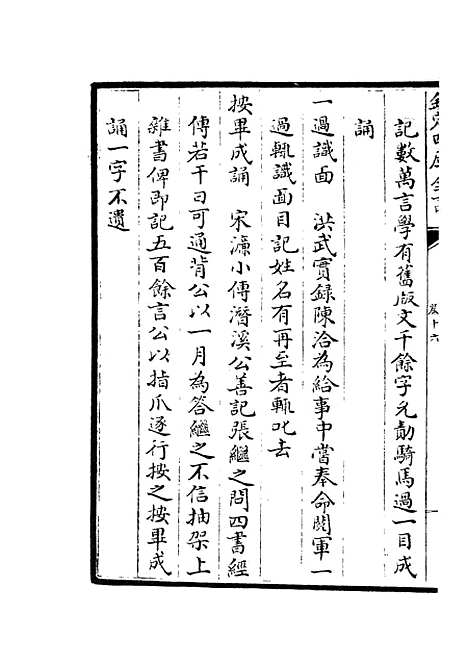 欽定四庫全書
卷十六
記數萬言學有舊版文千餘字元勛騎馬過一目成
誦
一過識面　洪武實録陳洽為給事中嘗奉命閱軍一
過輒識面目記姓名有再至者輒叱去
按畢成誦　宋濂小傳潛溪公善記張繼之問四書經
傳若干曰可通背公以一月為答繼之不信抽架上
雜書俾即記五百餘言公以指爪逐行按之按畢成
誦一字不遺